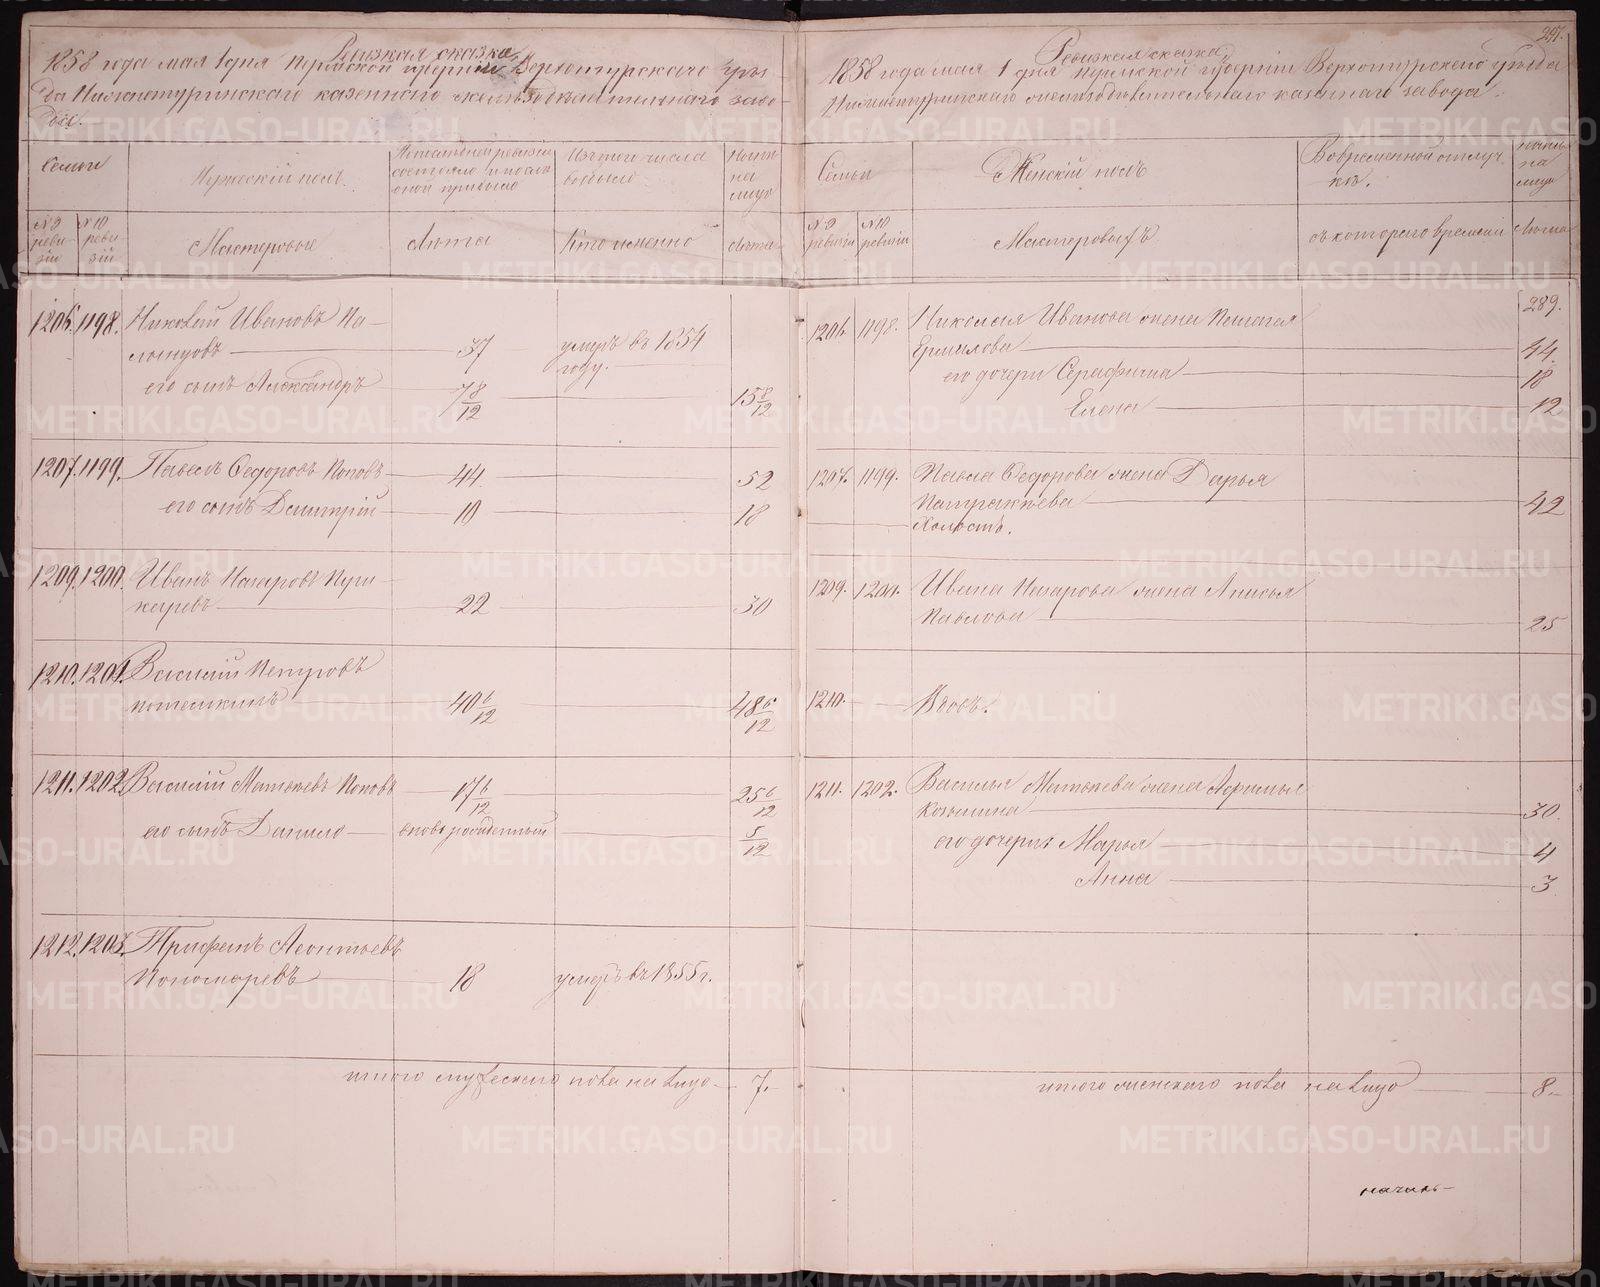 Ревизкая сказка
1858 года мая 1 дня Пермской губернии Верхотурского уѣз
да Нижнетуринскаго казеннаго желѣзодѣлательнаго заво-
да.
Семьи
Мужескій полъ.
По послѣдней ревизіи
состояло и после
оной прибыло
Изъ того числа
выбыло
Ныне
на
лицо
№ 9
реви-
зіи
№ 10
реви-
зіи
Мастеровые
Лѣта
Кто именно
Лѣта
1206. 1198. Николай Ивановъ Па-
37 умеръ въ 1854
году.
его сынъ Александръ 7 8/12 15 8/12
1207. 1199. Павелъ Федоровъ Поповъ 44 52
его сынъ Дмитрій 10 18
1209. 1200. Иванъ Назаровъ Пуш
каревъ 22 30
1210. 1201. Василій Петровъ
Потемкинъ 40 6/12 48 6/12
1211. 1202. Василій Матвѣевъ Поповъ 17 6/12 25 6/12
его сынъ Данило вновь рожденный 5/12
1212. 1203. Трифонъ Леонтьевъ
Пономаревъ 18 умеръ въ 1855 г.
итого мужескаго пола на лицо 7.
297.
Ревизкая сказка
1858 года мая 1 дня Пермской губерніи Верхотурскаго уѣзда
Нижнетуринскаго желѣзодѣлательнаго казеннаго завода.
Семьи
Женскій полъ
Во временной отлуч
кѣ.
Ныне
на
лицо
№ 9
ревизіи
№ 10
ревизіи
Мастеровыхъ
съ котораго времени
Лѣта
289.
1206. 1198. Николая Иванова жена Пелагея
Ермилова 44.
его дочери Серафима 18
Елена 12
1207. 1199. Павла Федорова жена Дарья
Патракѣева 42
Холостъ.
1209. 1200. Ивана Назарова жена Анисья
Павлова 25
1210. Вдовъ.
1211. 1202. Василья Матвѣева жена
Козмина 30.
его дочери Марья 4
Анна 3
итого женскаго пола на лицо 8.
METRIKI.GASO-URAL.RU